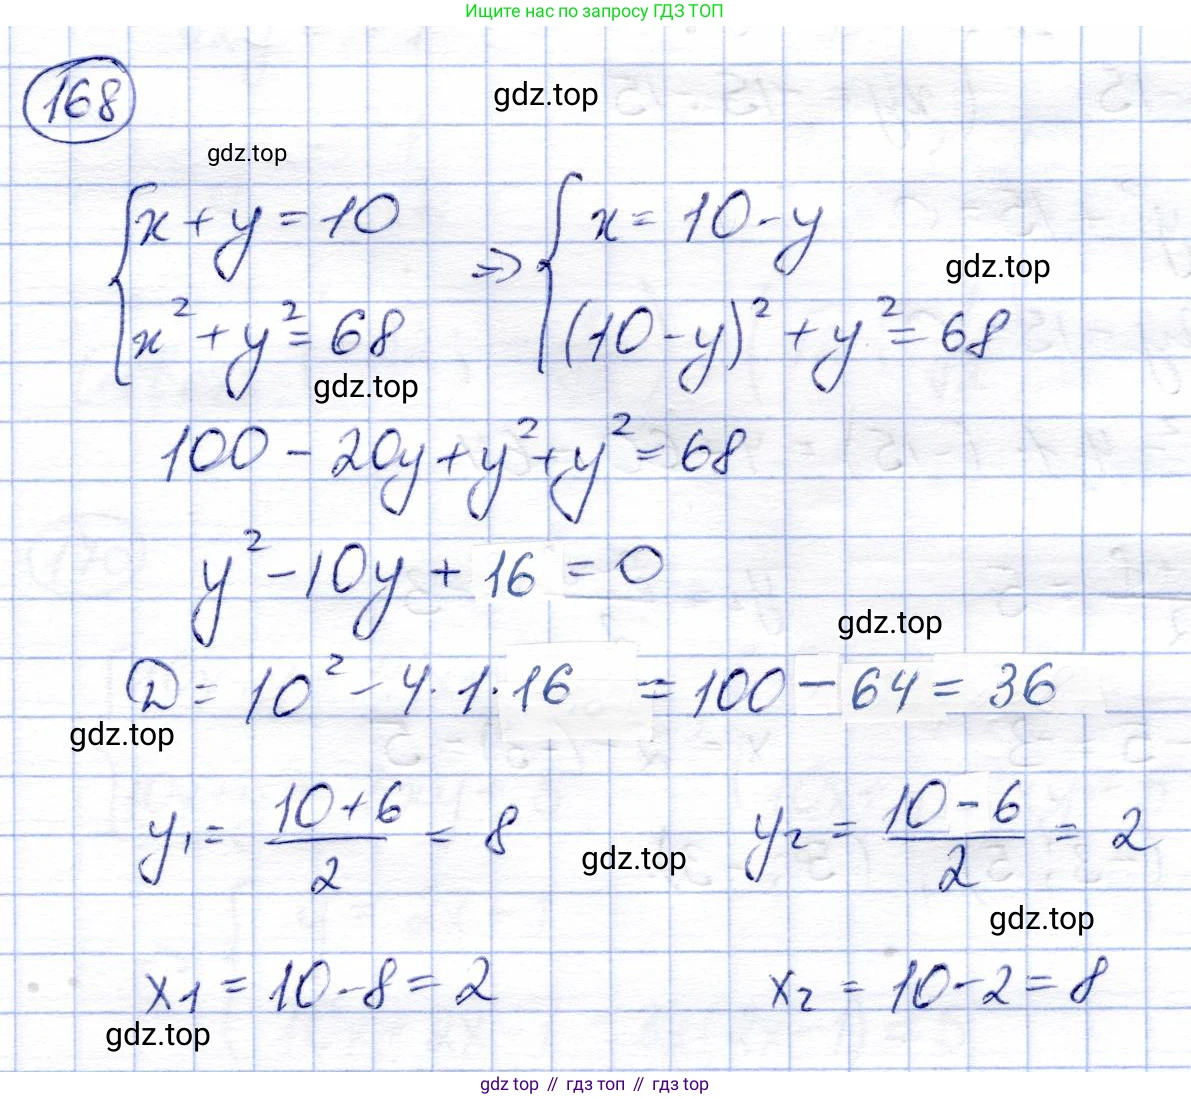 Ищите нас по запросу ГДЗ ТОП
168
gdz.top
gdz.top
x + y = 10 => x = 10 - y
gdz.top
x² + y² = 68 (10 - y)² + y² = 68
gdz.top
100 - 20y + y² + y² = 68
y² - 10y + 16 = 0
gdz.top
D = 10² - 4 · 1 · 16 = 100 - 64 = 36
gdz.top
y₁ = (10 + 6)/2 = 8 y₂ = (10 - 6)/2 = 2
gdz.top
gdz.top
x₁ = 10 - 8 = 2 x₂ = 10 - 2 = 8
gdz.top
gdz top // гдз топ // гдз top